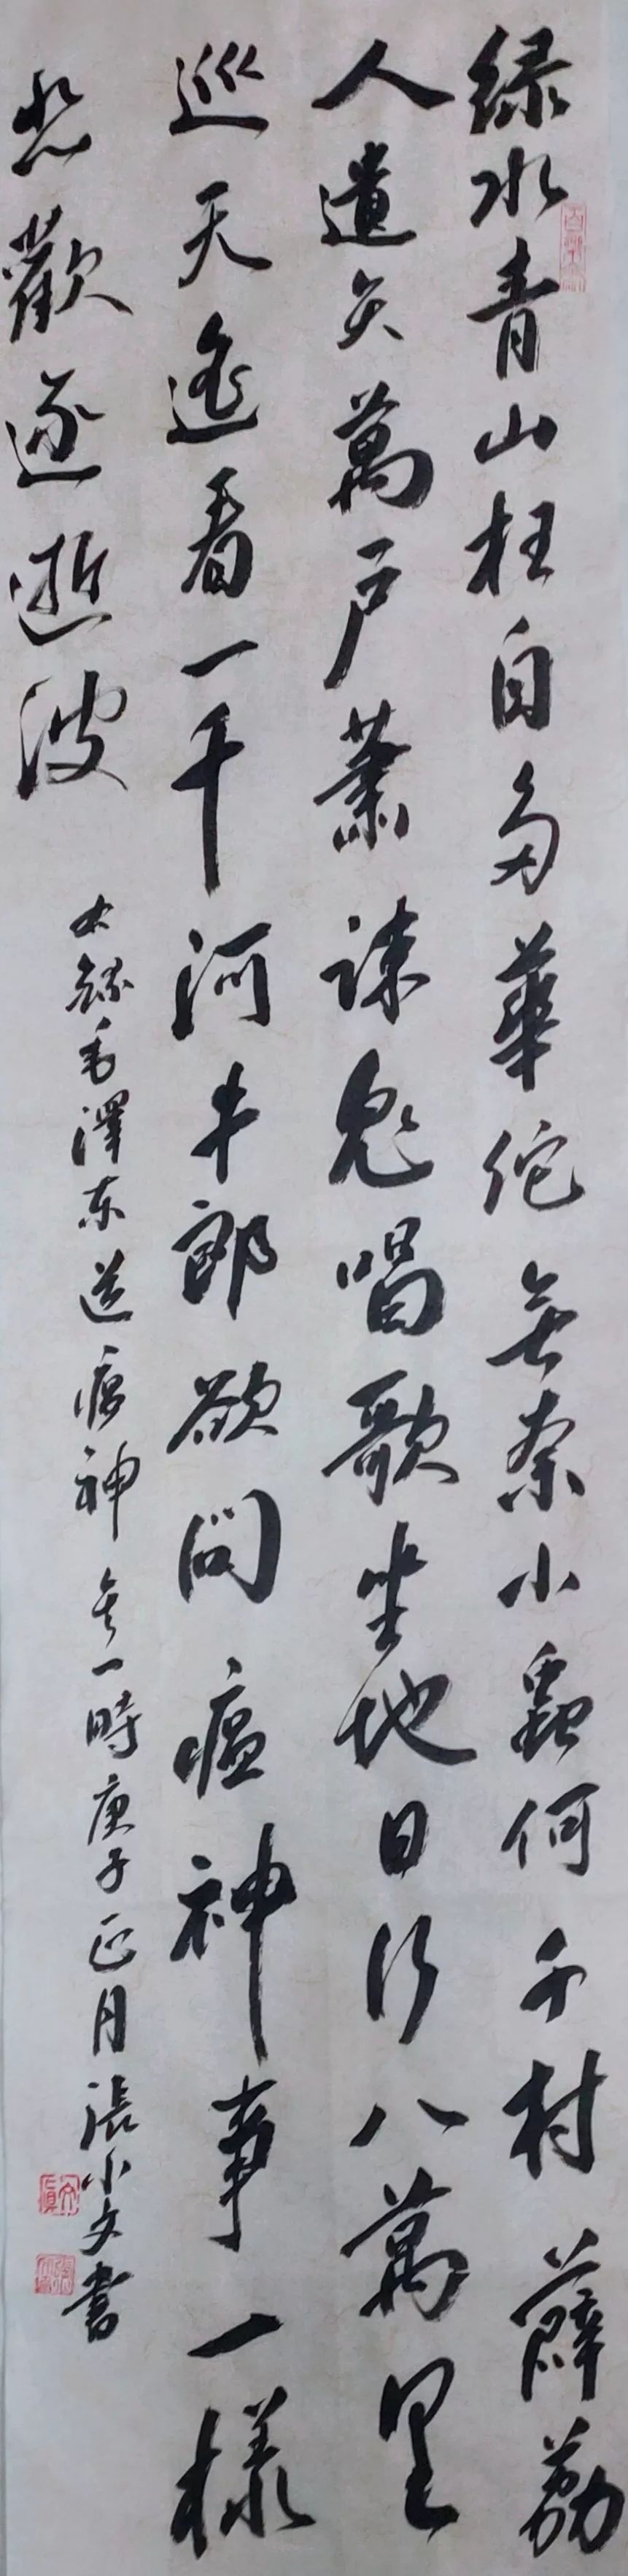 绿水青山枉自多華佗無奈小蟲何千村薜荔
人遺矢萬戶蕭疎鬼唱歌坐地日行八萬里
巡天遙看一千河牛郎欲問瘟神事一樣
悲歡逐逝波
毛澤東送瘟神其一時庚子正月張小文書